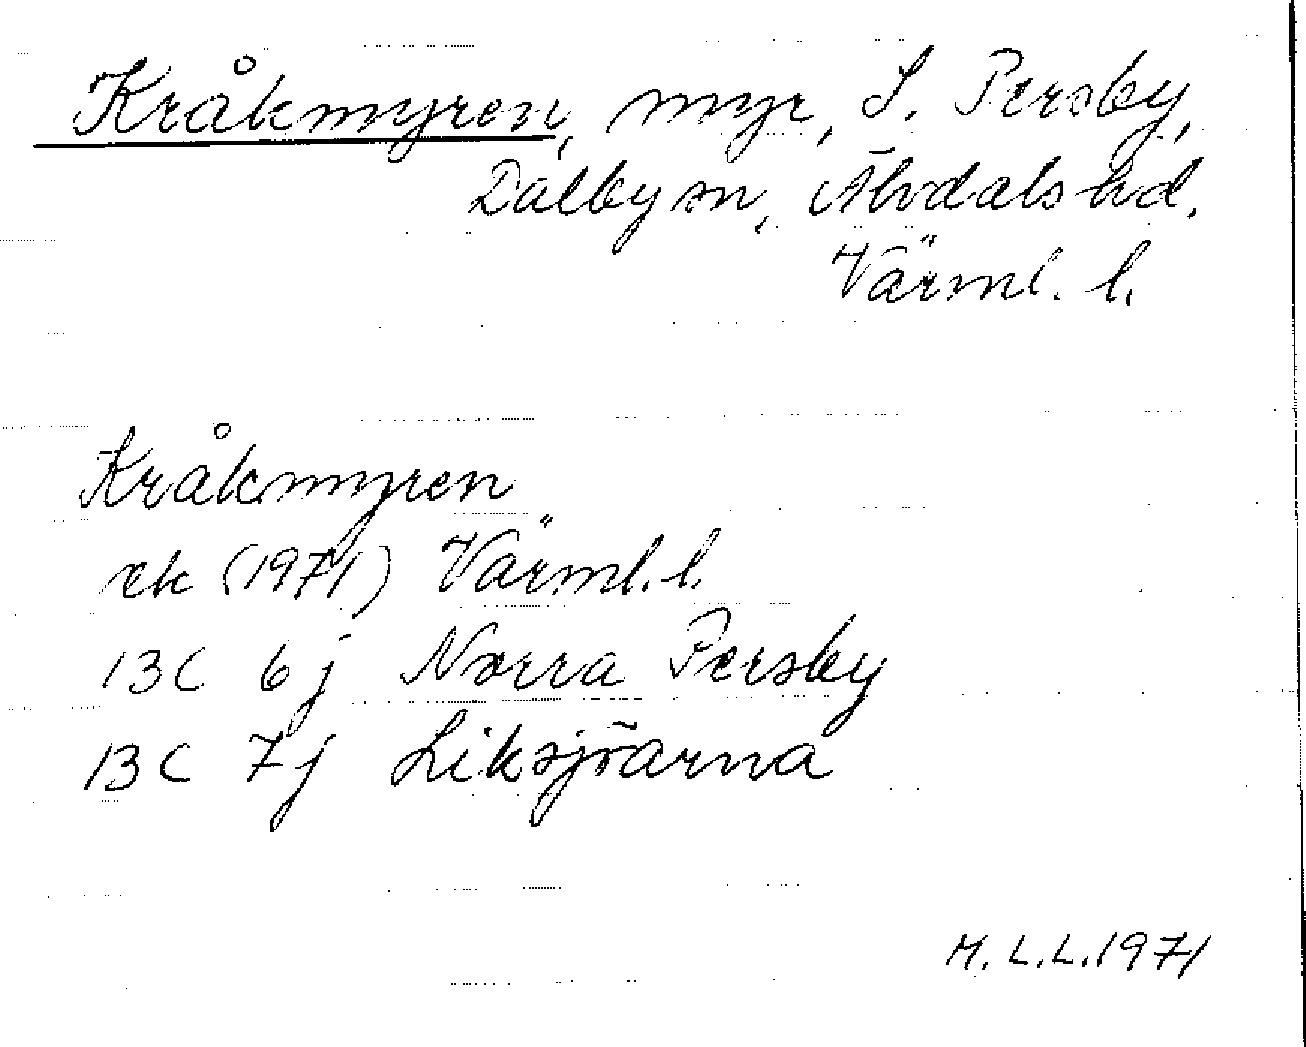 Kråkmyren, myr, S. Persby,
Dalby sn, Älvdals hd,
Värml. l.
Kråkmyren
ek (1971) Värml. l.
13C 6j Norra Persby
13C 7j Liksjöarna
M.L.L. 1971